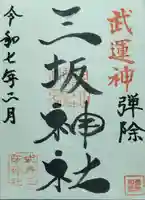 武運神
弾除
三坂神社
令和七年二月